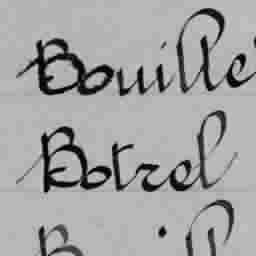 Bouille
Botrel